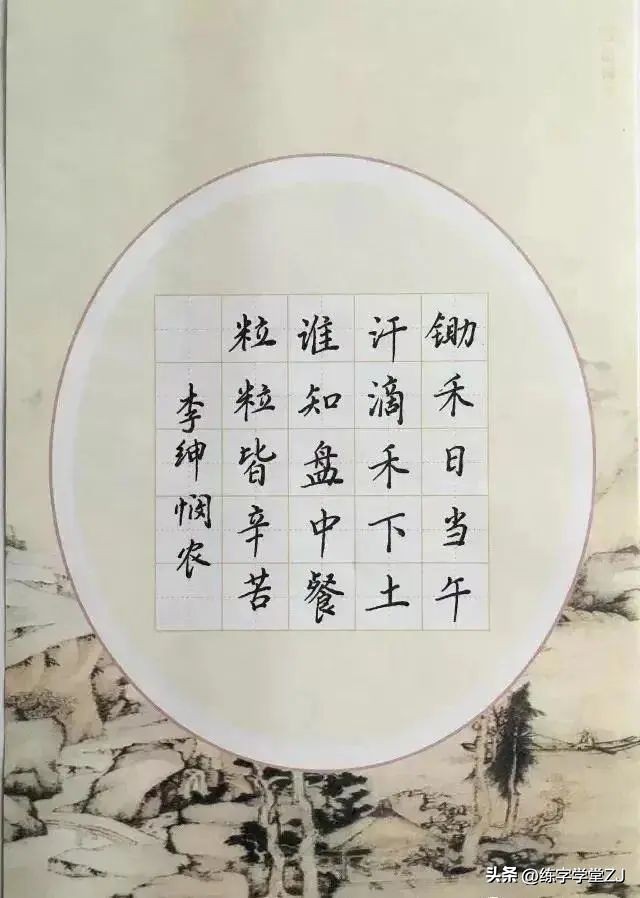 锄禾日当午
汗滴禾下土
谁知盘中餐
粒粒皆辛苦
李绅悯农
头条 @练字学堂ZJ